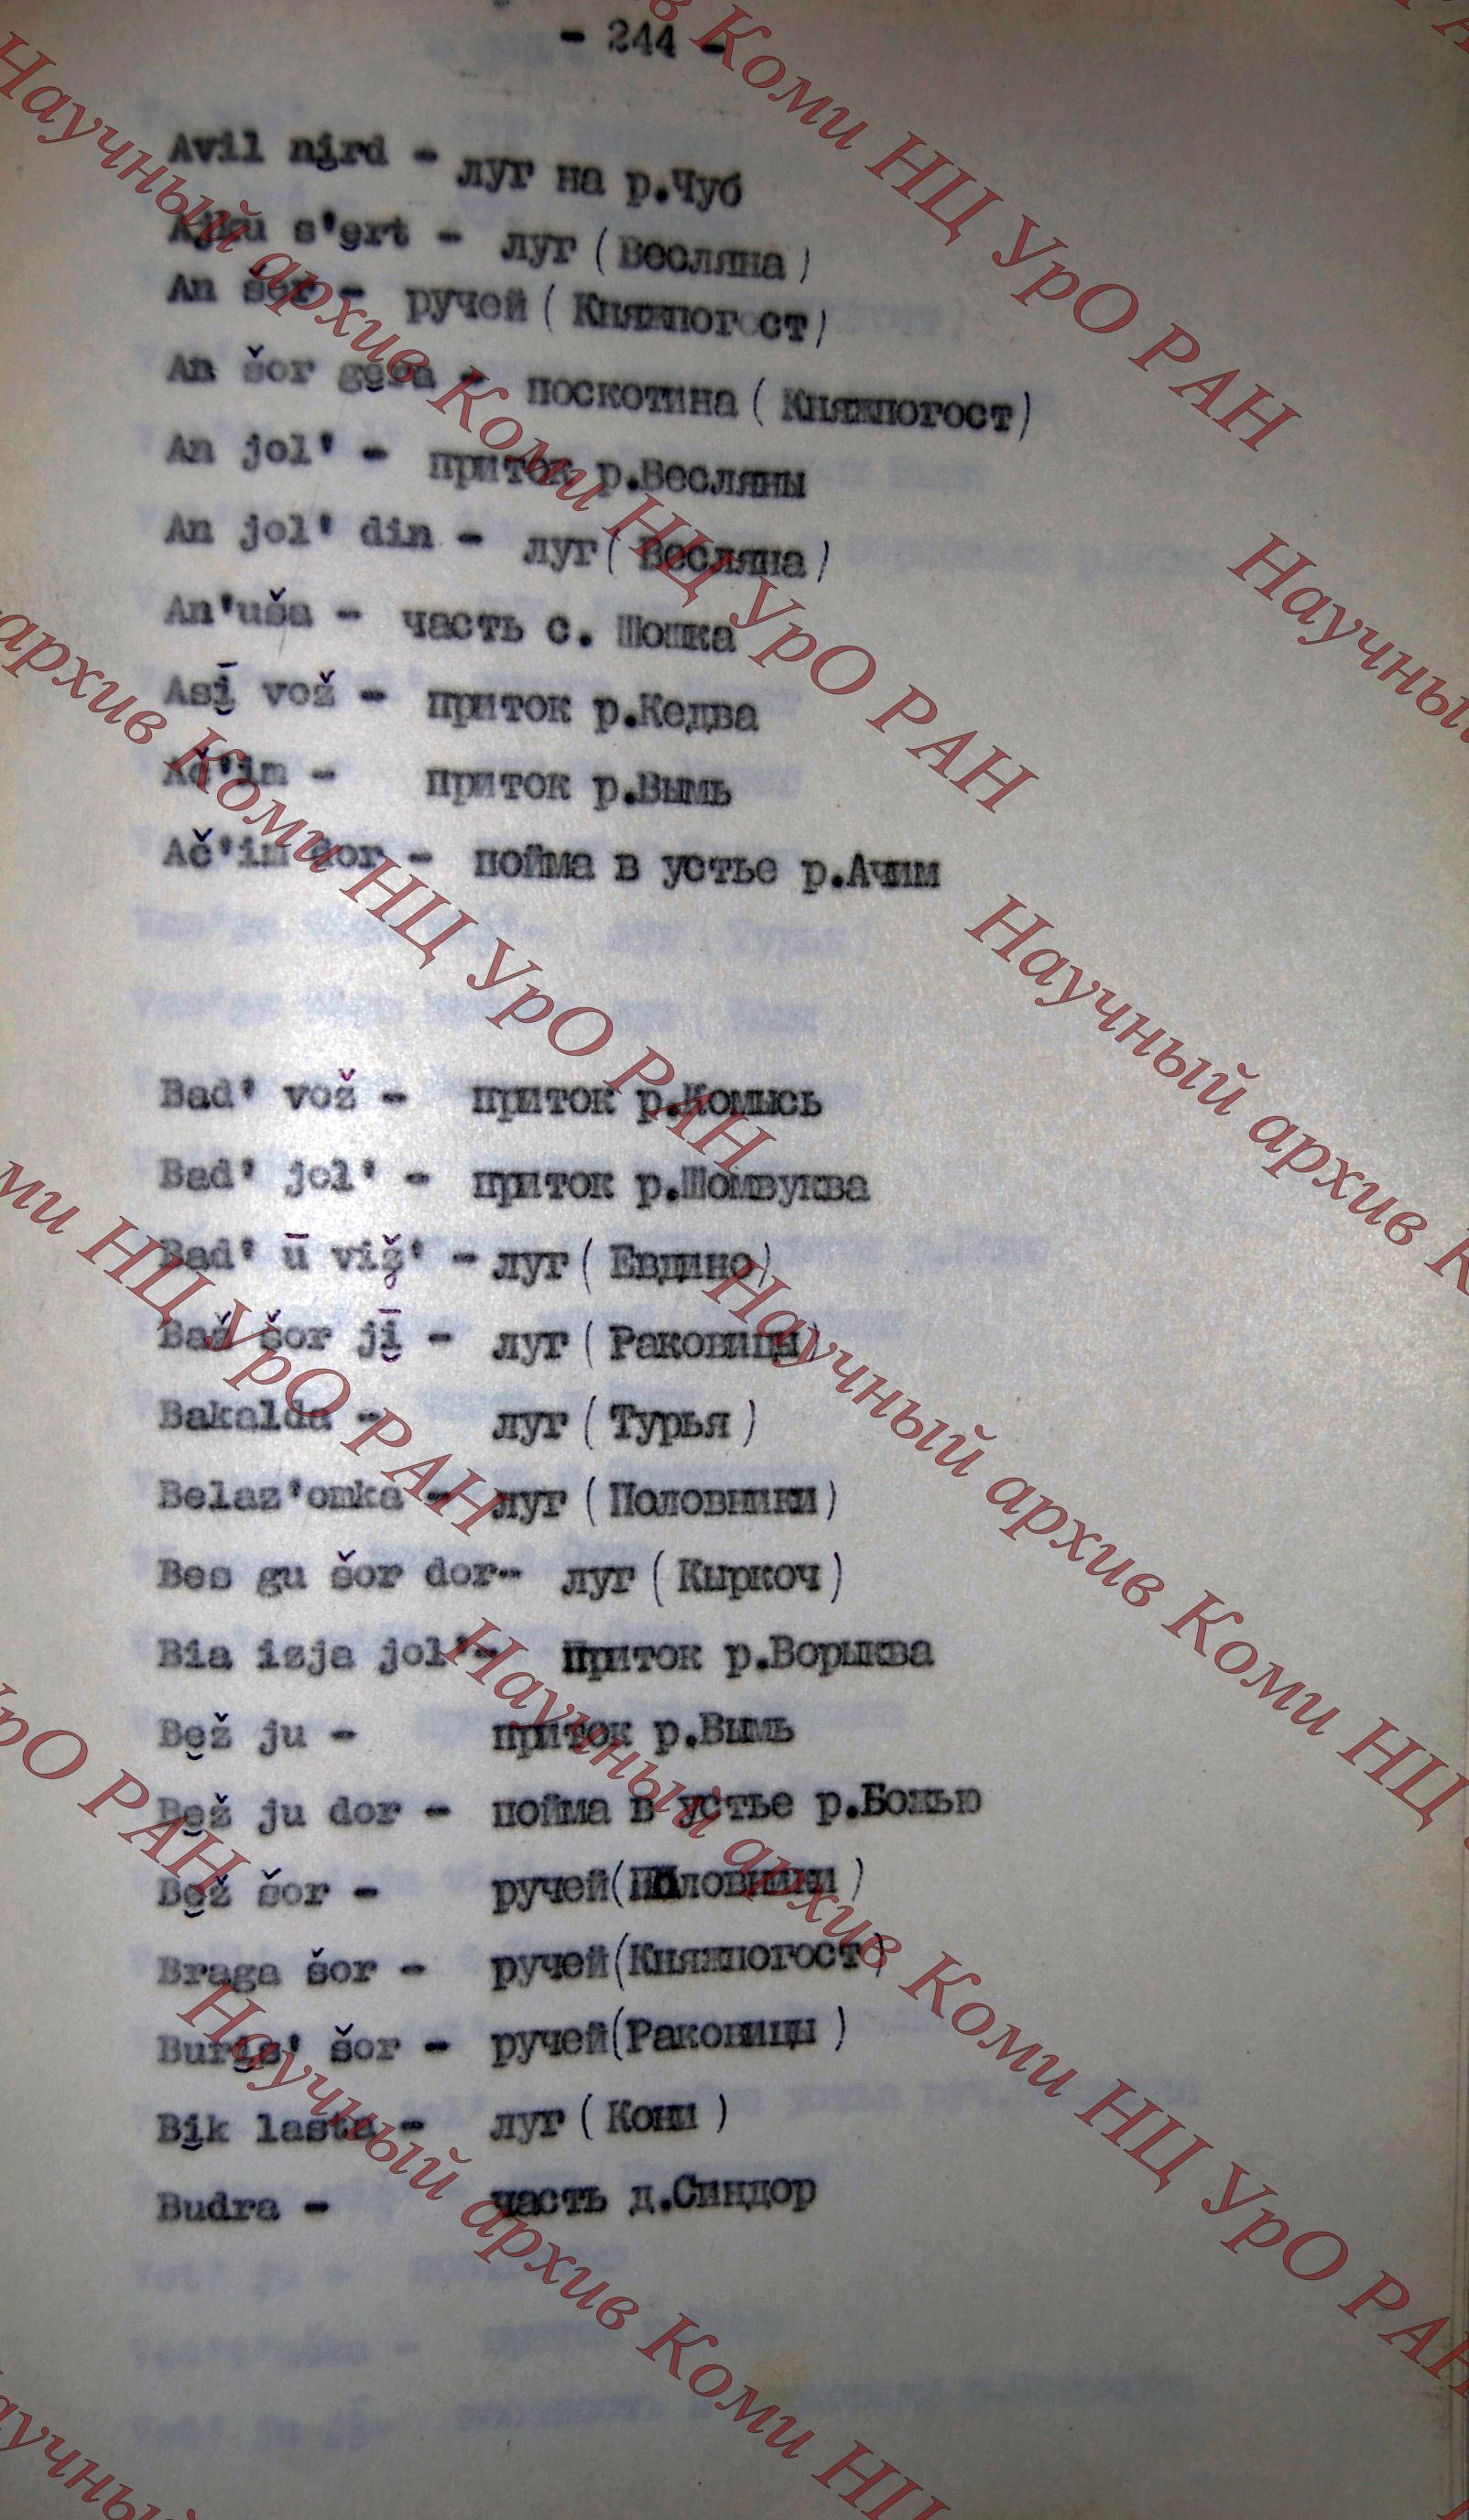 - 244 -
Avil ni̮rd - луг на р.Чуб
Ajku s'ert - луг (Весляна)
An šor - ручей (Княжпогост)
An šor ge̮ra - поскотина (Княжпогост)
An jol' - приток р.Весляны
An jol' din - луг (Весляна)
An'uša - часть с. Шошка
Asī̮ vož - приток р.Кедва
Ač'im - приток р.Вымь
Ač'im dor - пойма в устье р.Ачим
Bad' vož - приток р.Комысь
Bad' jol' - приток р.Шомвуква
Bad' ū viš' - луг (Евдино)
Baž šor jī̮ - луг (Раковицы)
Bakalda - луг (Турья)
Belaz'omka - луг (Половники)
Bes gu šor dor- луг (Кыркоч)
Bia izja jol'- приток р.Ворыква
Be̮ž ju - приток р.Вымь
Be̮ž ju dor - пойма в устье р.Божью
Be̮ž šor - ручей(Половники)
Braga šor - ручей(Княжпогост)
Buri̮s' šor - ручей(Раковицы)
Bi̮k lasta - луг (Кони)
Budra - часть д.Синдор
Научный архив Коми НЦ УрО РАН